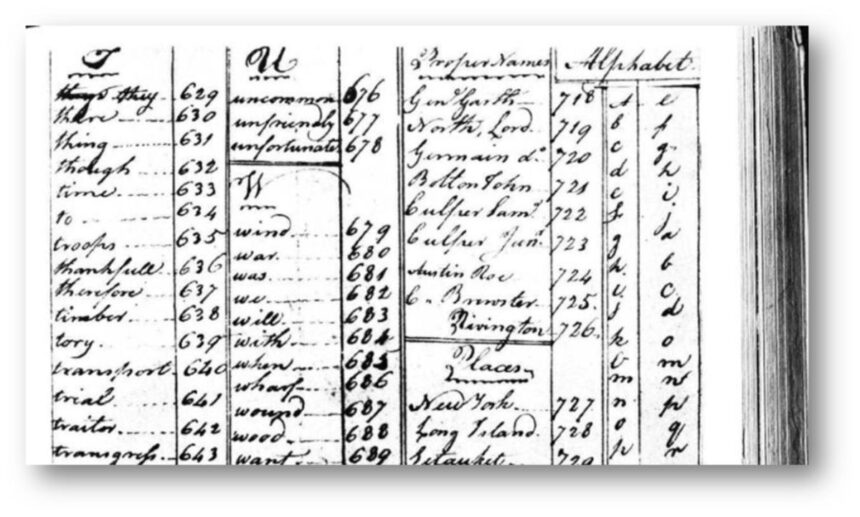 T
they 629
there 630
thing 631
though 632
time 633
to 634
troops 635
thankfull 636
therefore 637
timber 638
tory 639
transport 640
trial 641
traitor 642
transgress 643
U
uncommon 676
unfriendly 677
unfortunate 678
W
wind 679
war 680
was 681
we 682
will 683
with 684
when 685
wharf 686
wound 687
wood 688
want 689
Proper Names
Genl Garth 718
North, Lord 719
Germain do 720
Bolton John 721
Culper Saml 722
Culper Junr 723
Austin Roe 724
C. Brewster 725.
Rivington 726.
Places
New York 727
Long Island 728
Setauket 729
Alphabet
A e
b f
c g
d h
e i
f j
g a
h b
i c
j d
k o
l m
m n
n p
o q
p r